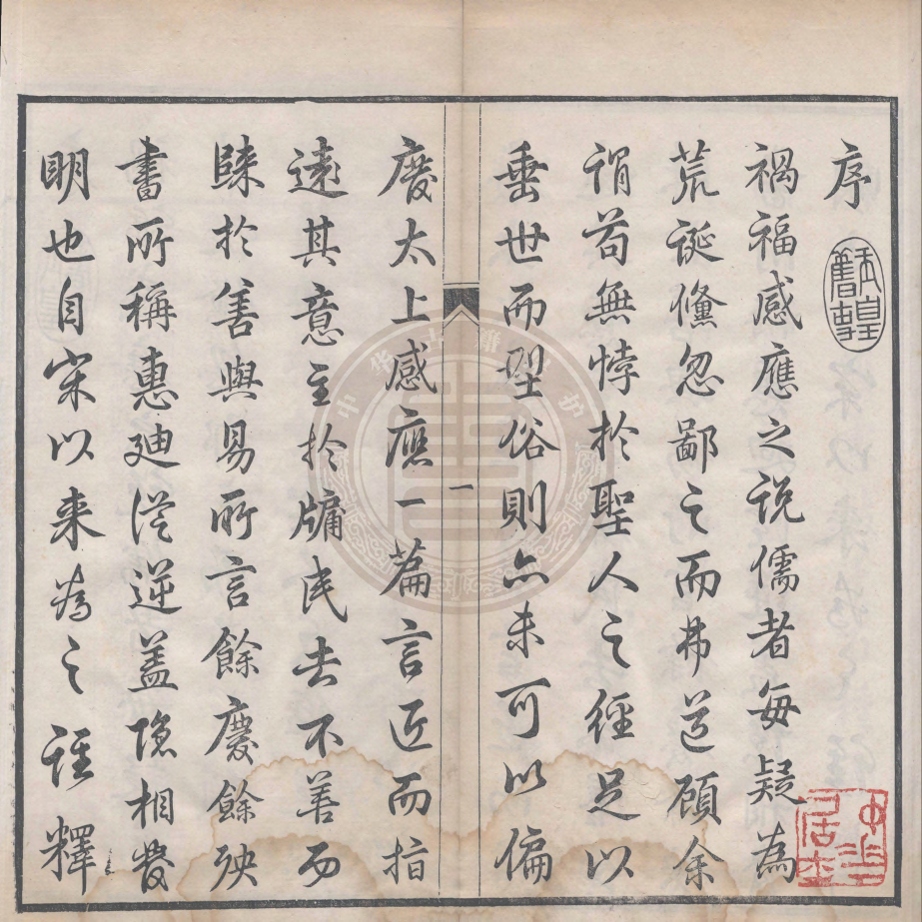 序
禍福感應之説儒者每疑為
荒誕儻忽鄙之而弗道顧余
謂苟無悖於聖人之經足以
垂世而型俗則亦未可以偏
廢太上感應一篇言近而指
遠其意主於牖民去不善而
歸於善與易所言餘慶餘殃
書所稱惠迪從逆蓋隐相發
明也自宋以来為之註釋
一